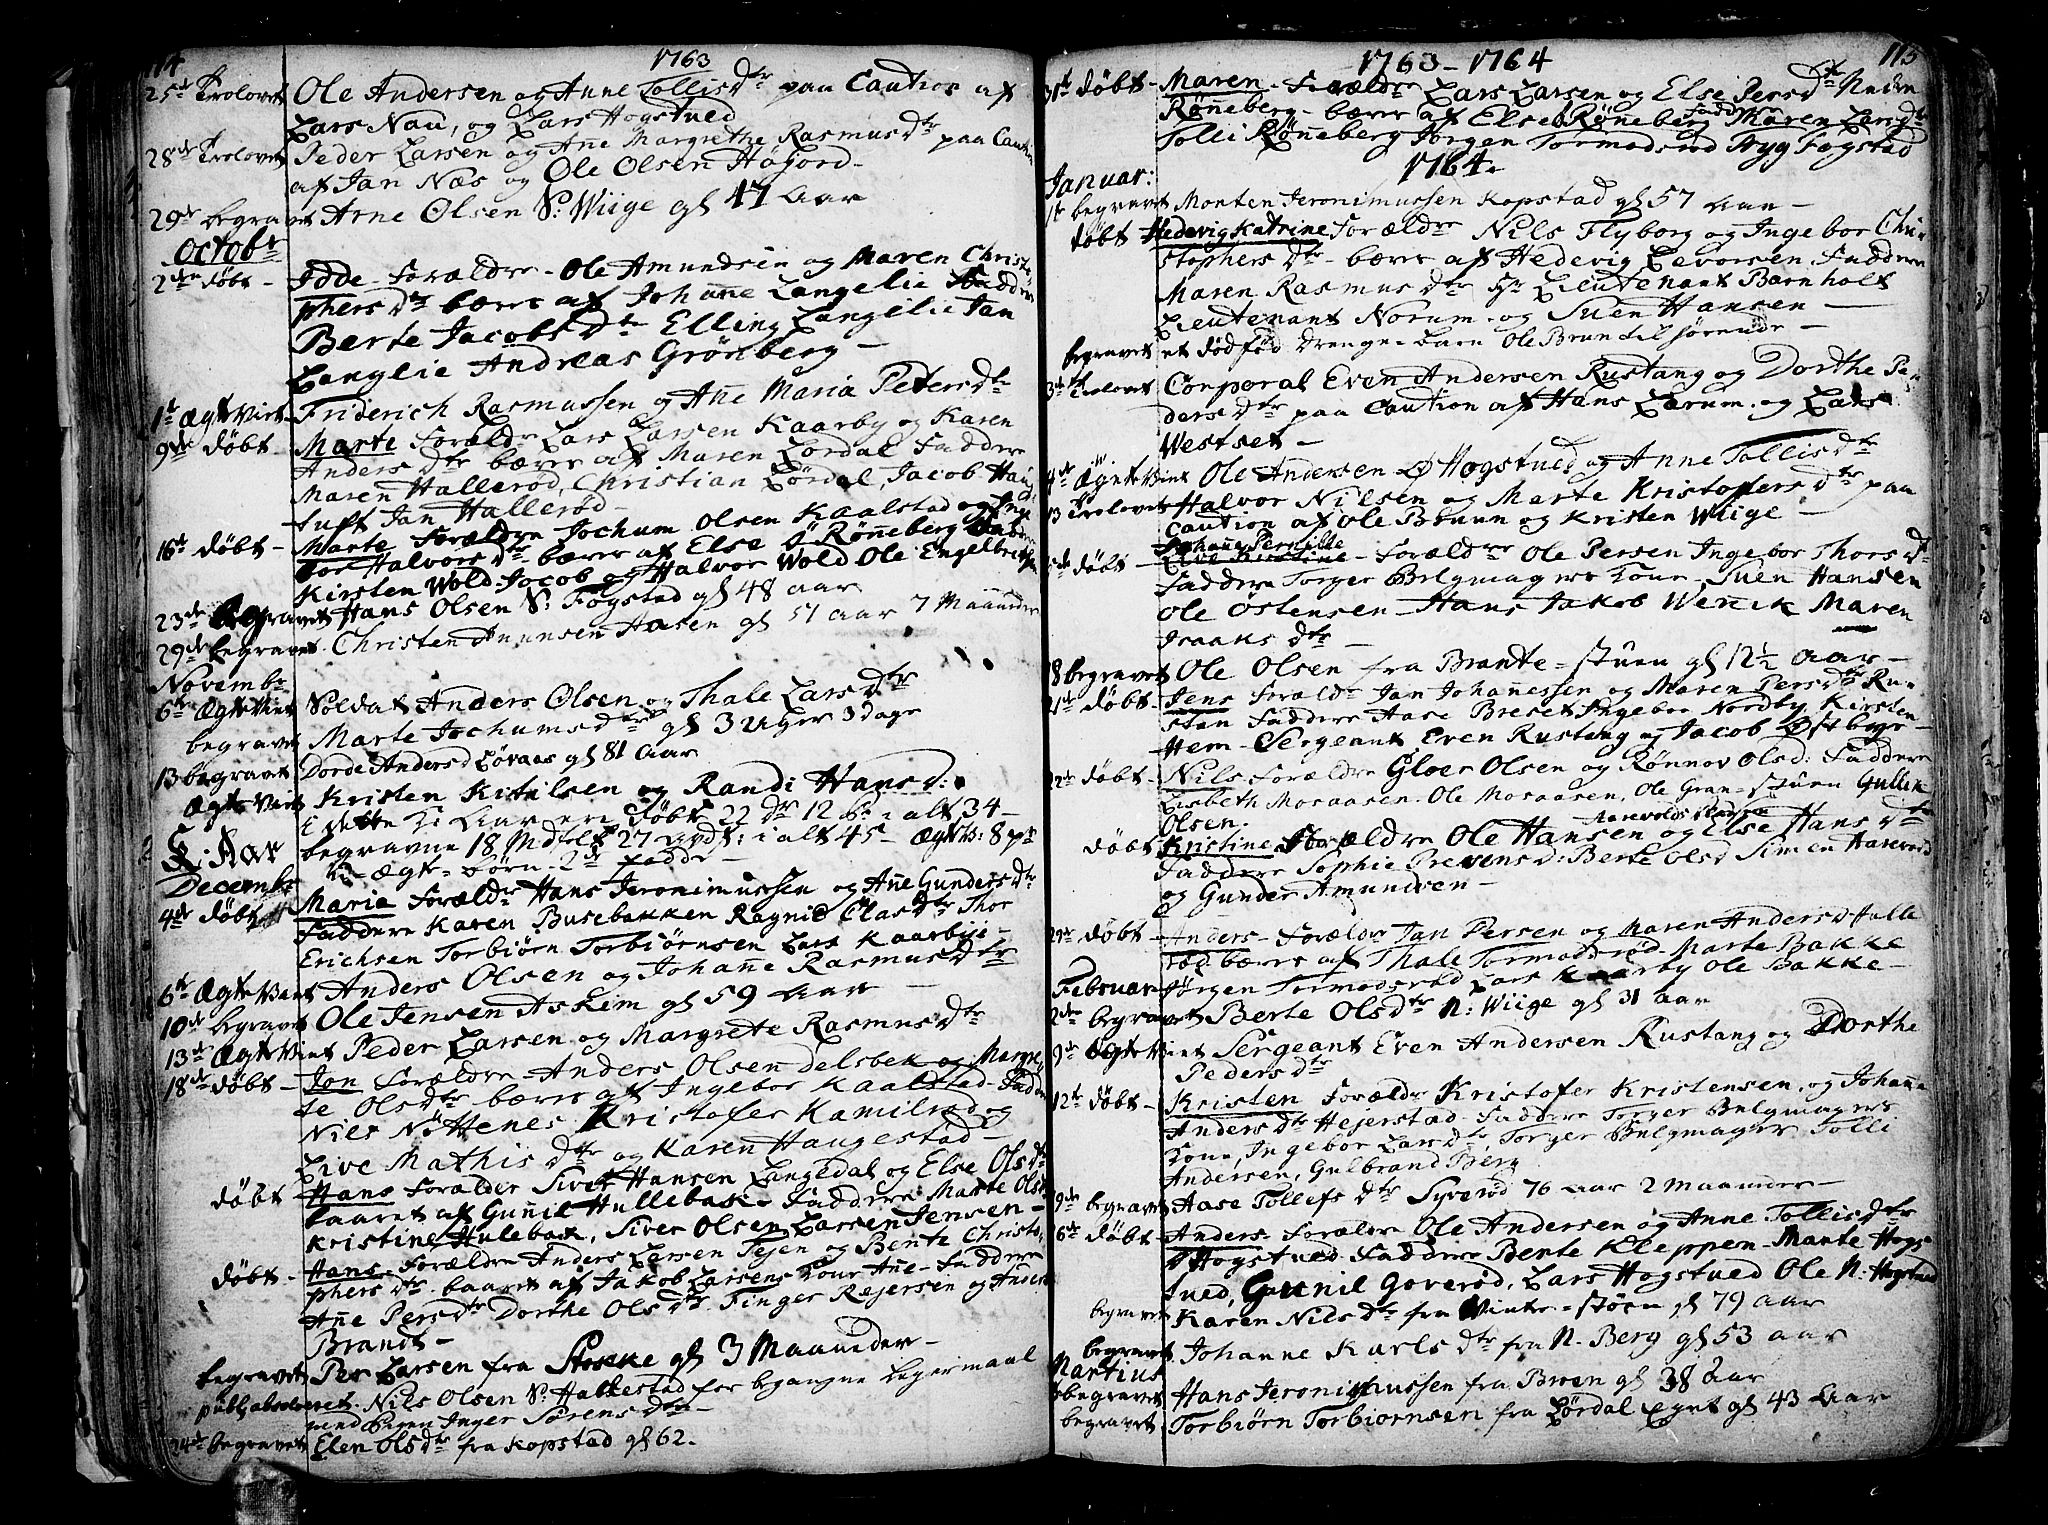 114
1763
25de Trolovet Ole Andersen og Anne TollisDtr paa Caution af
Lars Nau, og Lars Hogstued
28de Trolovet Peder Larsen og Ane Margrethe RasmusDtr paa Caution
af Jan Næs og Ole Olsen Høijord-
29de begravet Arne Olsen S: Wiige gl 47 Aar
Octobr
2den døbt - Idde - Forældre - Ole Amundsen og Maren Christo
phersDtr bæres af Johane Langelie Faddere
Berte JacobsDtr Elling Langelie Jan
Langlie Andreas Grønberg -
1t Ægte Viet Friderich Rasmussen og Ane Maria PetersDtr
9de døbt - Marte Forældr Lars Larsen Kaarby og Karen
AndersDtr bæres af Maren Lørdal Faddere
Maren Hallerød, Christian Lørdal, Jacob Haug
tuft Jan Hallerød -
16de døbt - Marte Forældre Jochum Olsen Kaalstad og Inge
bor HalvorsDtr bæres af Else Ø Røneberg Faddere
Kirsten Wold Jacob og Halvor Wold Ole Engelbritsen
23de Begravet Hans Olsen S: Fogstad gl 48 aar
29de begravet Christen Anunsen Hasen gl 51 aar 7 Maaneder
Novembr
6te Ægte Viet Soldat Anders Olsen og Thale LarsDtr
begravet Marte JochumsDtr gl 3 Uger 3 Dage
13 begravet Dorde Andersd Løvaas gl 81 Aar
Ægte Viet Kristen Kittilsen og Randi Hansd:
i dette Ki Aar ere døbte 22 Dr 12 P. i alt 34 -
begravne 18 Mdl 27 Qvd: i alt 45 - Ægte V: 8 p
K: Aar
Decembr
4de døbt Marie Forældr Hans Jeronimussen og Ane GundersDtr
Faddere Karen Busebakken Ragnild ClasDtr Thor
Erichsen Torbiørn Torbiørnsen Lars Kaarbye -
6te Ægte Viet Anders Olsen og Johane RasmusDtr
10de begravet Ole Jensen Askim gl 59 Aar -
13de Ægte Viet Peder Larsen og Margrete RasmusDtr
18de døbt - Jon Forældre - Anders Olsen Delsbek og Margre
te OlsDtr bæres af Ingebor Kaalstad - Faddere
Niels Nøttenes Kristofer Kamilrød og
Live MathisDtr og Karen Haugestad -
døbt Hans Forælder Siver Hansen Langedal og Else OlsDtr
baaret af Gunil Hullebak - Faddere Marte Olsd
Kristine Hulebak, Siver Olsen Larsen Jensen -
døbt - Hans - Forældre Anders Larsen Tejen og Bente Christo
phersDtr baaret af Jakob Larsens Kone Ane - Faddere
Ane PersDtr Dorthe OlsDtr Finger Rejersen og Anders
Brandt -
begravet Per Larsen fra Stokke gl 3 Maaneder -
publ: absolveret Nils Olsen S: Halkestad for begangne Legermaal
med Pigen Inger SørensDtr -
24de begravet Elen OlsDtr fra Kopstad gl 62.
1763 - 1764
115
31te døbt - Maren - Forældre Lars Larsen og Else PersDtr Neden
Røneberg - bæres af Else Røneberg Faddere Maren LarsDtr
Tolli Røneberg Jørgen Tormodsrød Tryg Fogstad
1764.
Januar:
1te begravet Morten Jeronimussen Kopstad gl 57 Aar -
døbt Hedevig Katrine Forældre Nils Flyborg og Ingebor Chri-
stophersDtr - bæres af Hedevig Levorsen. Faddere
Maren RasmusDtr Hr Lieutenant Barnholt
Lieutenant Norum - og Suen Hansen -
begravet et dødfød Drenge-Barn Ole Brun tilhørende -
3de Trolovet Corporal Even Andersen Rustang og Dorthe Pe-
dersDtr paa Caution af Hans Lærum og Lars
Westset -
Ægte Viet Ole Andersen Ø Hogstued og Anne TollisDtr
13 Trolovet Halvor Nilsen og Marte KristoffersDtr paa
Caution af Ole Bruun og Kristen Wiige -
døbt - Johane Pernille - Forældre Ole Persen Ingebor ThorsDtr
Faddere Torger Belgmagers Kone - Suen Hansen
Ole Østensen Hans Jakob Wenik Maren
IsaaksDtr -
18 begravet Ole Olsen fra Brante-stuen gl 12 1/2 Aar -
døbt Jens Forældr Jan Johanessen og Maren PersDtr Ru-
stan Faddere Aase Breset Ingebor Nordby Kirsten
Hem - Sergeant Even Rustang og Jacob Østbye -
22de døbt - Nils - Forældre Gloer Olsen og Rønnov Olsd: Faddere
Lisbeth Moraasen. Ole Moraasen, Ole Gran-stuen Gullik
Olsen.
døbt Kristine Forældre Ole Hansen og Else HansDtr
Faddere Sophie Prevensd: Berte Olsd Simen Hasevold
og Gunder Amundsen -
29de døbt - Anders - Forældr Jan Persen og Maren Andersd Halle
rød bæres af Thale Tormodsrød - Marte Bakke
Jørgen Tormodsrød Lars Kaarby Ole Bakke -
Februar
2den begravet Berte OlsDtr N: Wiige gl 31 aar
9de Ægte Viet Sergeant Even Andersen Rustang og Dorthe
PedersDtr
12te døbt - Kristen Forældr Kristofer Kristensen, og Johane
AndersDtr Hejerstad Faddere Torger Belgmagers
Kone, Ingebor LarsDtr Torger Belgmager Tolli
Andersen, Gulbrand Berg
19de begravet Aase TollefsDtr Syverød 76 aar 2 Maaneder -
døbt - Anders - Forældre Ole Andersen og Anne TollisDtr
Ø Hogstued - Faddere Bente Kleppen - Mante Hogs
tued, Gunil Goverød, Lars Hogstued Ole N: Hogstued
begravet Karen NilsDtr fra Vinte-støen gl 79 aar
begravet Johanne KarlsDtr fra N. Berg gl 53 aar
Martius
begravet Hans Jeronimussen fra Broen gl 38 Aar
begravet Torbiørn Torbiornsen fra Lørdal Egnt gl 43 Aar